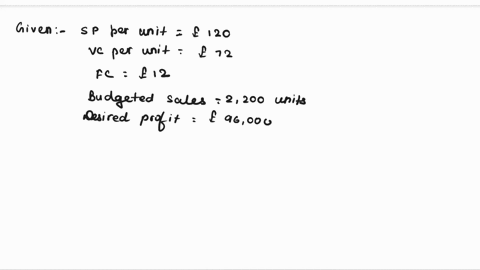 Given:- SP per unit = £ 120
VC per unit = £ 72
FC = £ 12
Budgeted sales = 2,200 units
Desired profit = £ 96,000